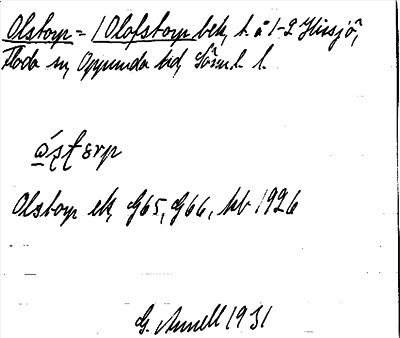 Olstorp = / Olofstorp bek, t. å 1-2 Husjö,
Floda sn, Oppunda hd, Sörml. l.
Olstorp ek, G65, G66, kb 1926
G. Annell 1931